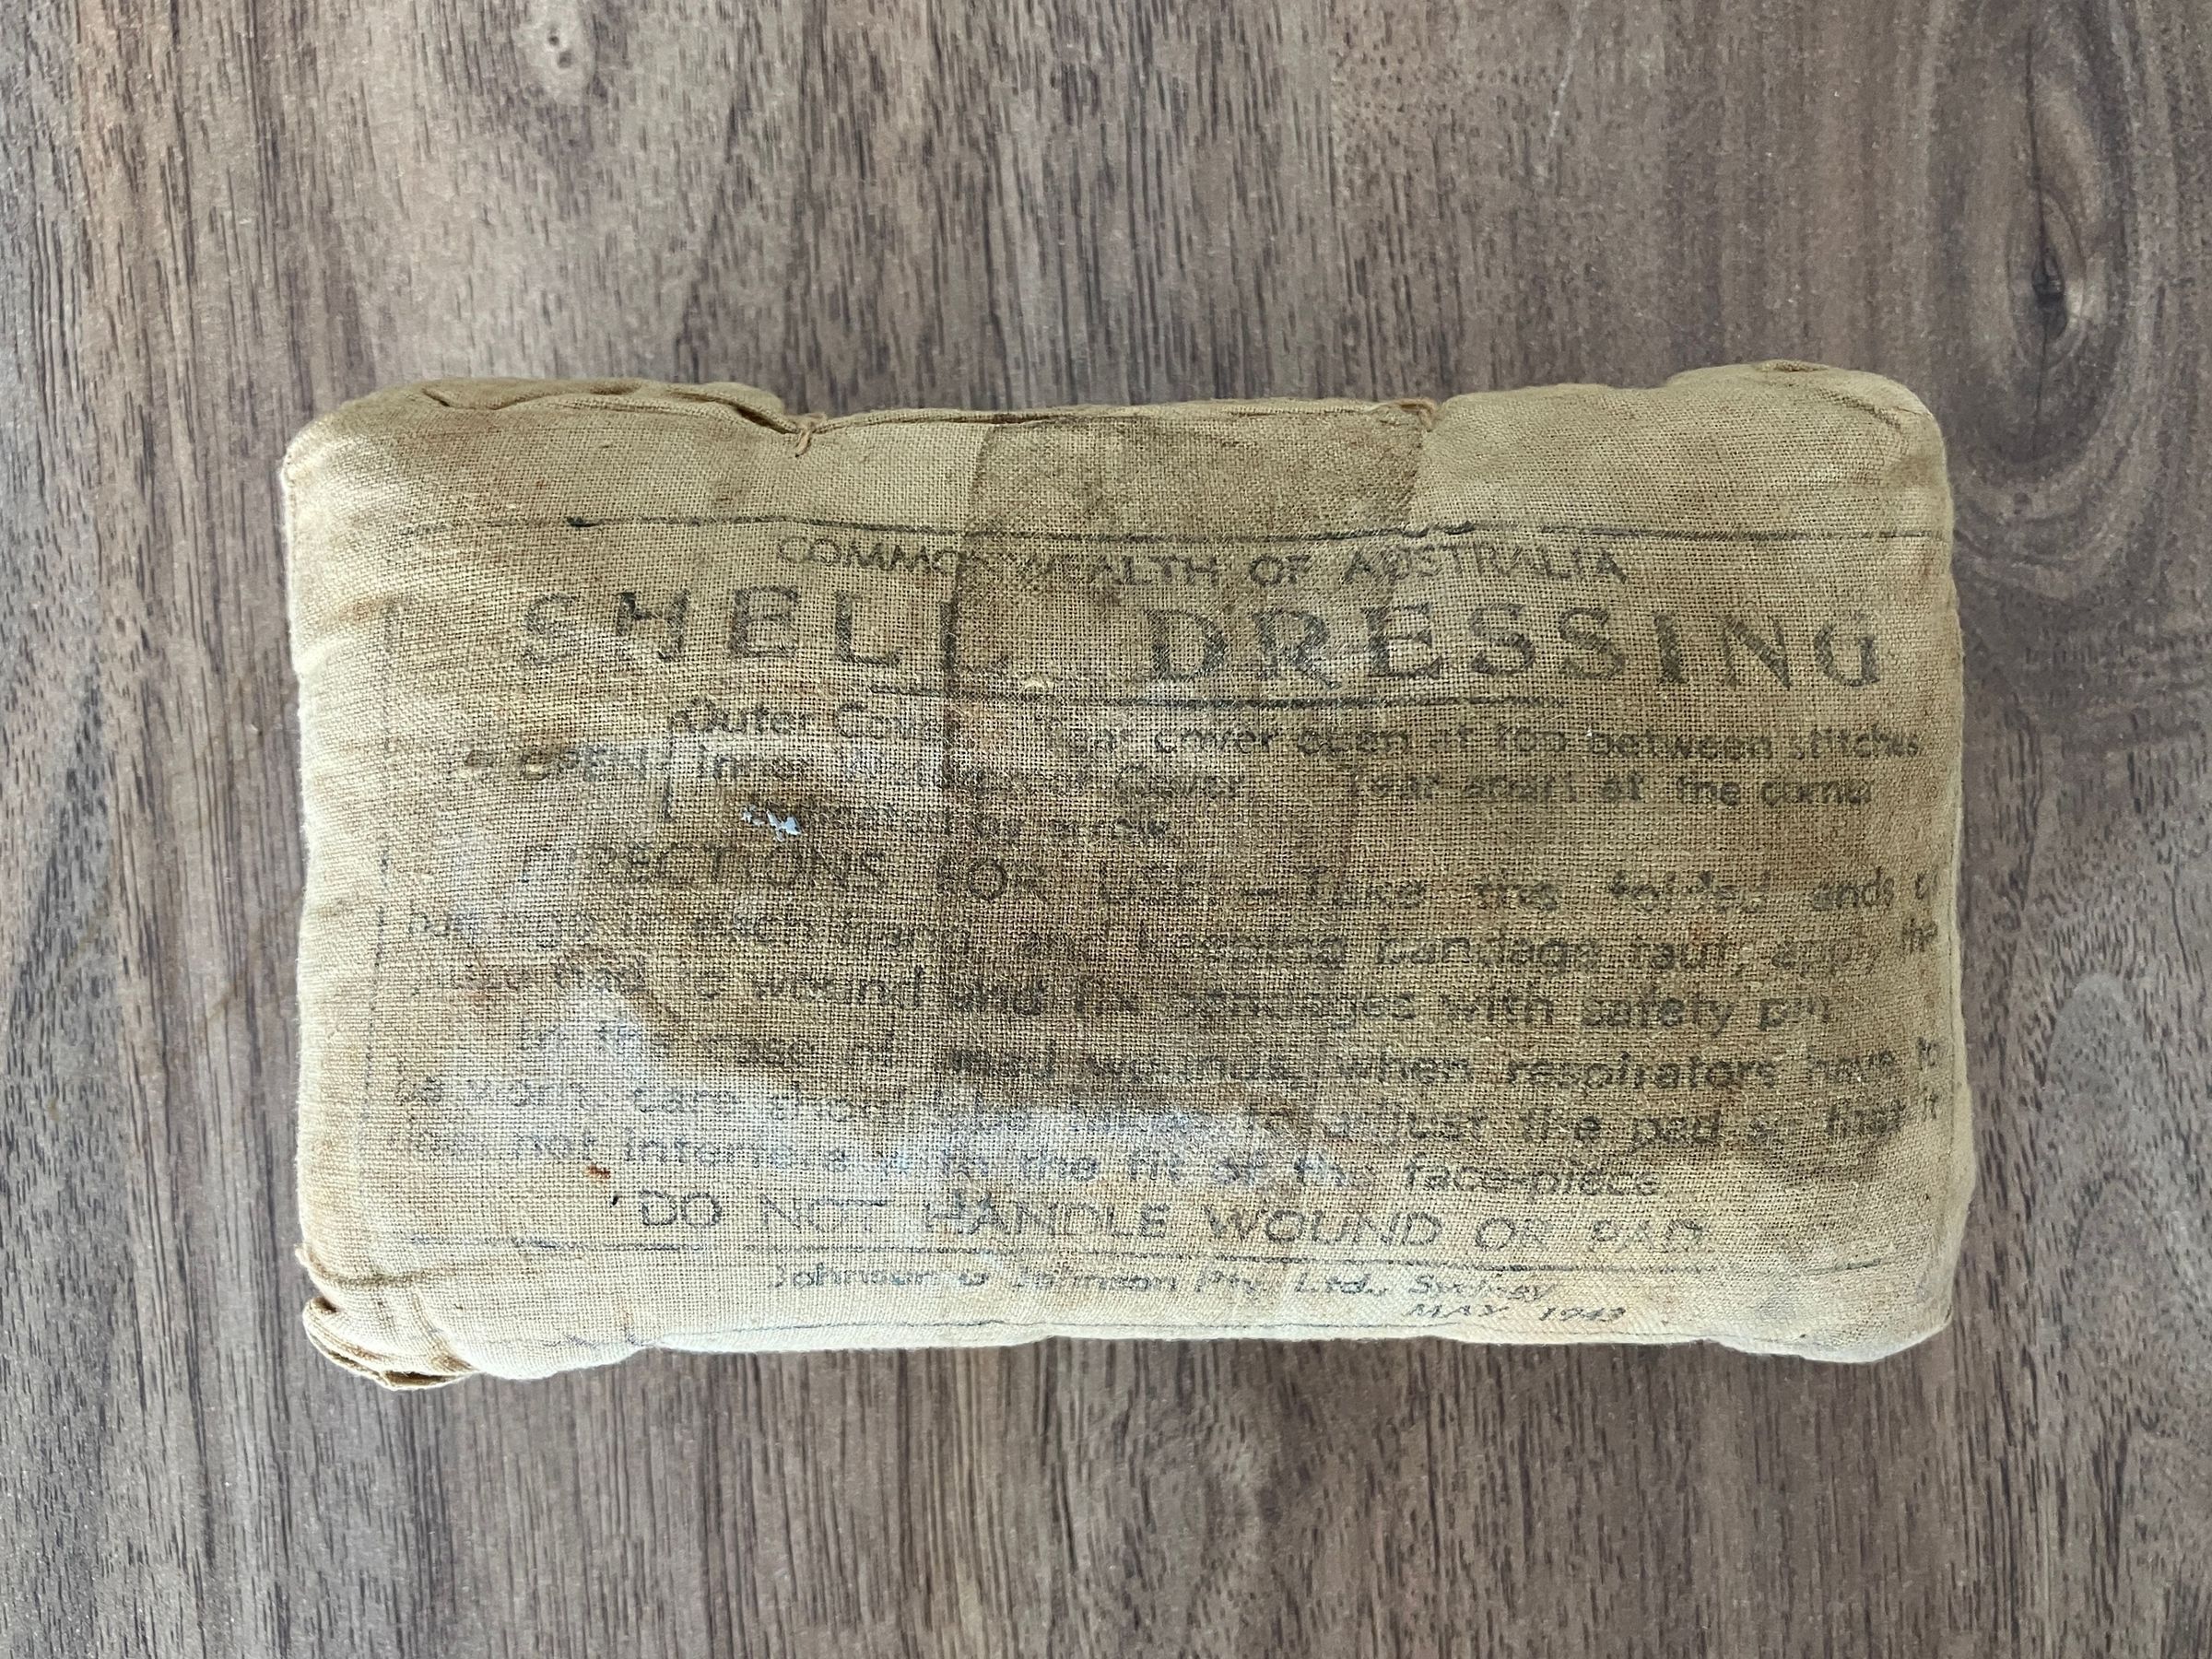 COMMONWEALTH OF AUSTRALIA
SHELL DRESSING
Outer Cover Tear cover open at top between stitches
TO OPEN Inner Waterproof Cover Tear apart at the corner
indicated by arrow
DIRECTIONS FOR USE. — Take the folded ends of
bandage in each hand, and keeping bandage taut, apply the
pad to wound and fix bandages with safety pin
In the case of head wounds, when respirators have to
be worn, care should be taken to adjust the pad so that it
does not interfere with the fit of the face-piece
DO NOT HANDLE WOUND OR PAD
Johnson & Johnson Pty. Ltd., Sydney
MAY 1943